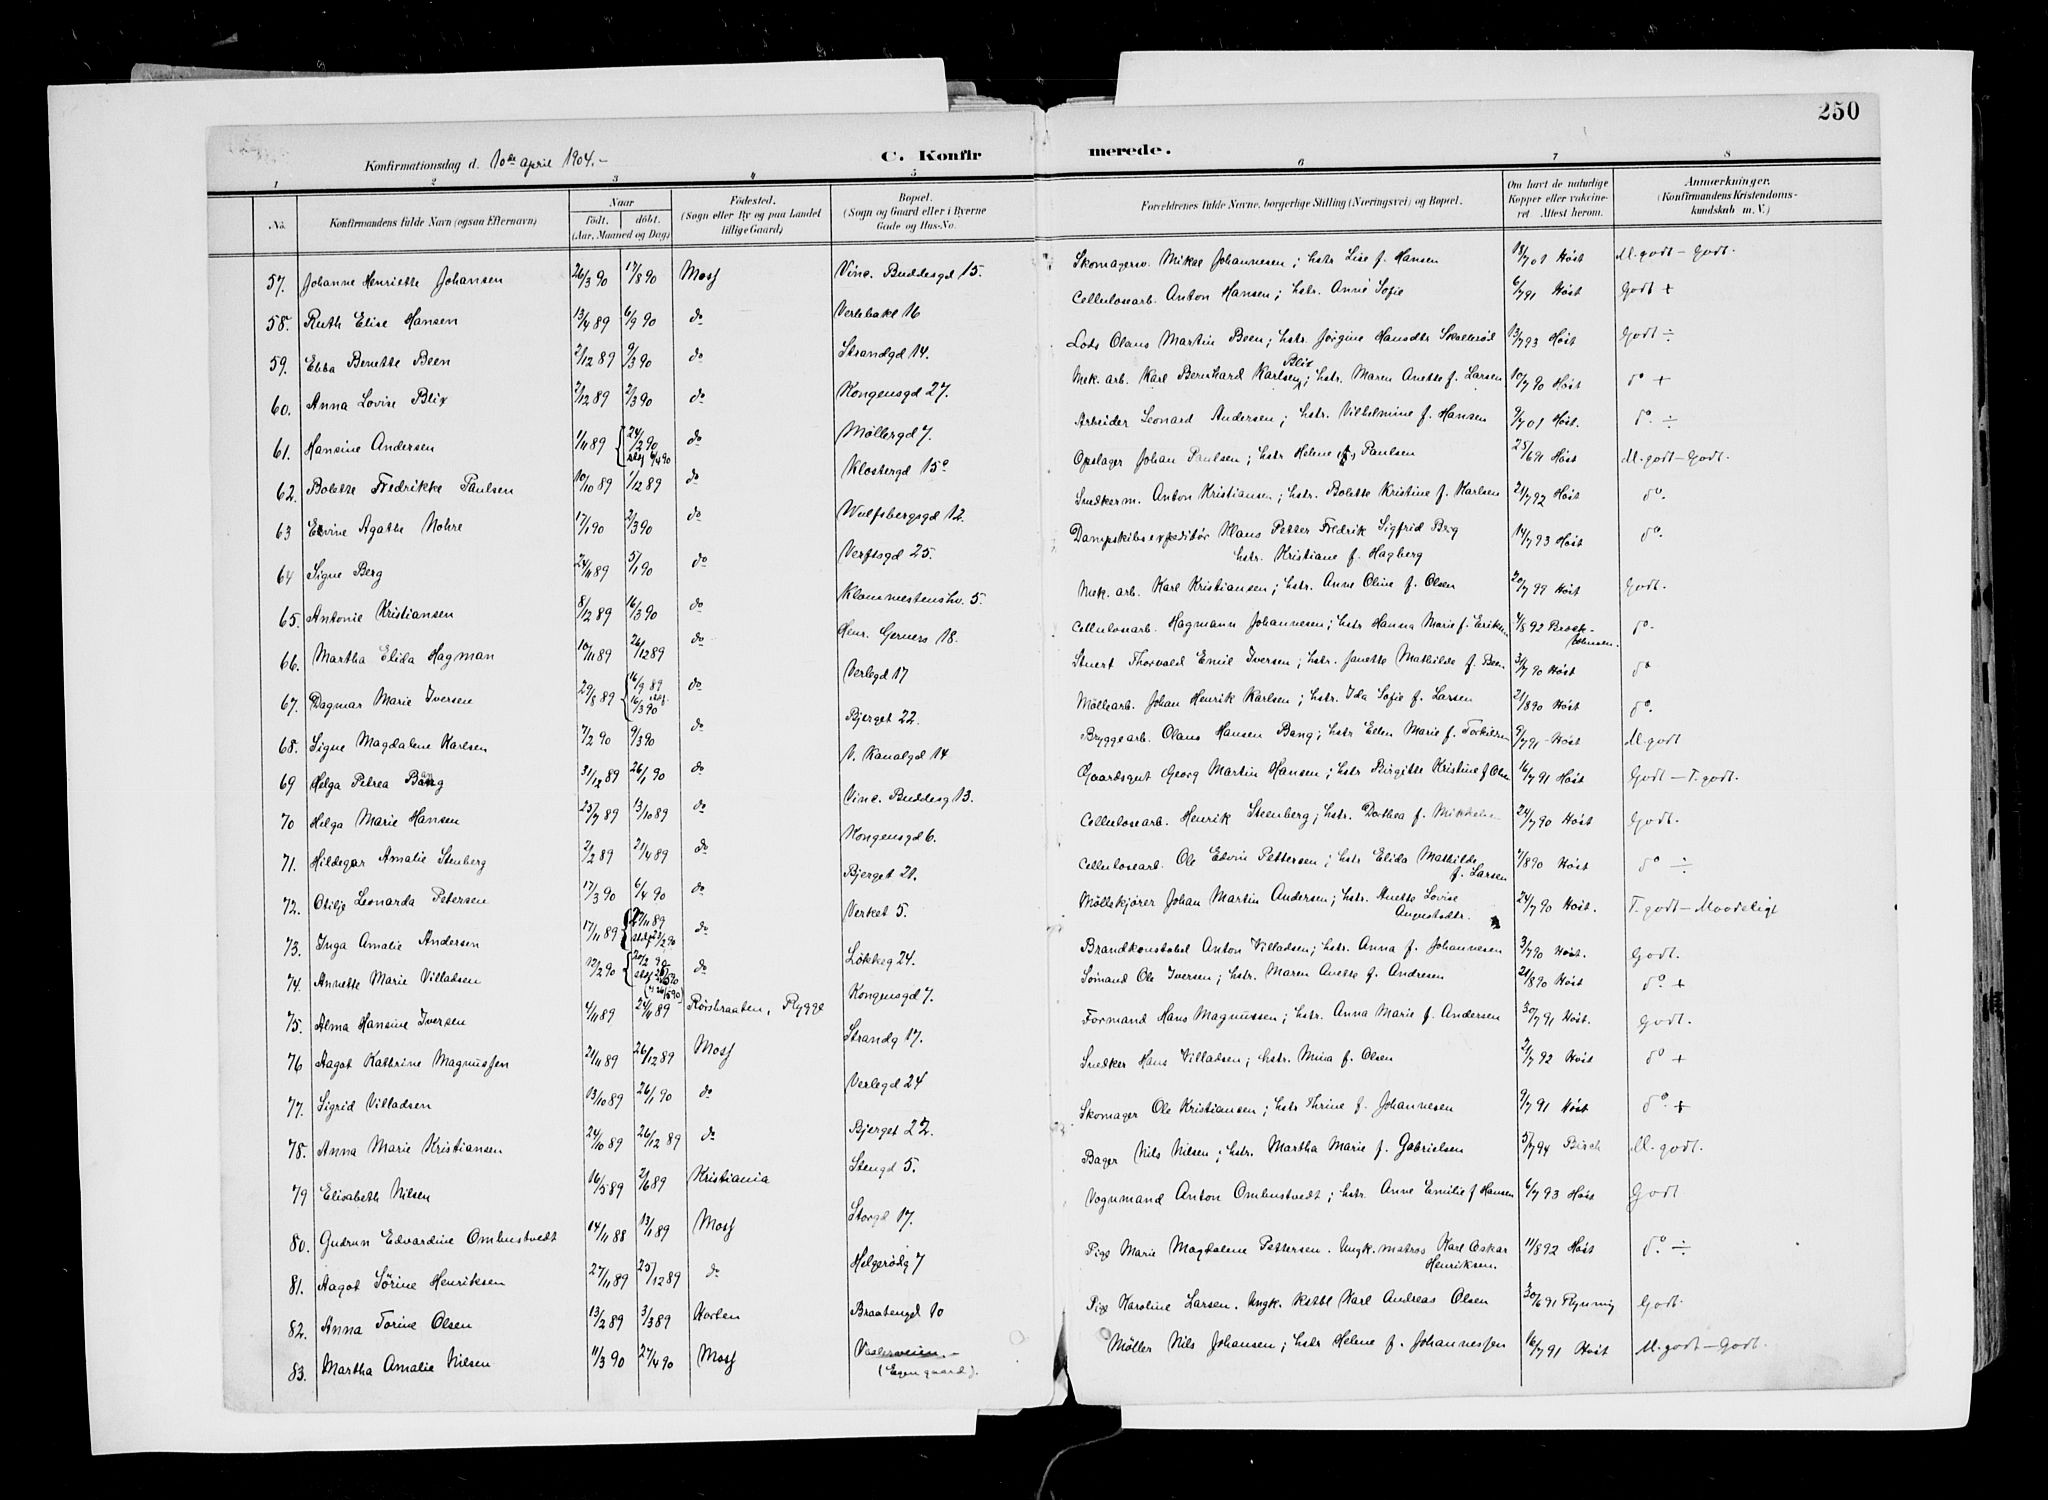 250
Konfirmationsdag d. 10de April 1904.- C. Konfirmerede.
1 2 3 4 5 6 7 8
No. Konfirmandens fulde Navn (ogsaa Efternavn) Naar født. døbt. (Aar, Maaned og Dag) Fødested. (Sogn eller By og paa Landet tillige Gaard) Bopæl. (Sogn og Gaard eller i Byerne Gade og Hus-No. Forældrenes fulde Navne, borgerlige Stilling (Næringsvei) og Bopæl. Om havt de naturlige Kopper eller vakcineret Attest herom. Anmærkninger. (Konfirmandens Kristendomskundskab m. V.)
57. Johanne Henriette Johansen 26/3 90 17/8 90 Moss Vinc. Buddesgd 15. Skomagersv. Mikal Johannesen; hstr Lise f. Hansen 18/7 01 Høst M. godt - Godt.
58. Ruth Elise Hansen 13/4 89 6/9 90 do Verlebakl 16 Cellulosearb. Anton Hansen; hstr. Anne Sofie 6/7 91 Høst Godt +
59. Ebba Benette Been 2/12 89 9/3 90 do Strandgd 14. Lods Olaus Martin Been; hstr. Jørgine Hansdtr 13/7 93 Høst Godt ÷
60. Anna Lovise Blix 2/12 89 2/3 90 do Kongensgd 27. Mek. arb. Karl Bernhard Karlsen Blix; hstr. Maren Anette f. Larsen 10/7 90 Høst do +
61. Hansine Andersen 1/11 89 24/2 90 stadf 6/4 90 do Møllergd 7. Arbeider Leonard Andersen; hstr. Vilhelmine f. Hansen 9/7 01 Høst. do ÷
62. Bolette Fredrikke Paulsen 10/10 89 1/12 89 do Klostergd 15 Opslager Johan Paulsen; hstr Helene Paulsen 25/6 91 Høst M. godt - Godt.
63 Edvine Agathe Nohre 17/1 90 2/3 90 do Wulfsbergsgd 12. Snedkerm. Anton Kristiansen; hstr. Bolette Kristine f. Karlsen 21/7 92 Høst do.
64 Signe Berg 24/11 89 5/1 90 do Verftsgd 25. Dampskibsexpeditør Hans Petter Fredrik Sigfrid Berg
hstr. Kristiane f. Hagberg 14/7 93 Høst do.
65. Antonie Kristiansen 8/12 89 16/3 90 do Klommestenshv. 5. Mek. arb. Karl Kristiansen; hstr. Anne Oline f. Olsen 20/7 99 Høst Godt.
66. Martha Elida Hagman 10/11 89 26/12 89 do Henr. Gerners 18. Cellulosearb. Hagmann Johannesen; hstr Hanna Marie f. Eriksen 4/8 92 do
67. Dagmar Marie Iversen 29/8 89 16/9 89 stadf. 16/3 90 do Verlegd 17 Stuert Thorvald Emil Iversen; hstr. Janette Mathilde f. Been 3/7 90 Høst do
68. Signe Magdalene Karlsen 7/2 90 9/3 90 do Bjerget 22. Møllearb. Johan Henrik Karlsen; hstr. Ida Sofie f. Larsen 21/8 90 Høst do.
69 Helga Petrea Bang 31/12 89 26/1 90 do N. Kanalgd 14 Bryggearb. Olaus Hansen Bang; hstr Ellen Marie f. Torkilsen 9/7 91 Høst M. godt
70 Helga Marie Hansen 25/7 89 13/10 89 do Vinc. Buddesg 13. Gaardsgut Georg Martin Hansen; hstr Birgitte Kristine f. Olsen 16/7 91 Høst Godt - T. godt.
71. Hildegar Amalie Stenberg 2/2 89 21/4 89 do Kongensgd 6. Cellulosearb. Henrik Steenberg; hstr. Dorthea f. Mikkelsen 24/7 90 Høst Godt.
72. Otilje Leonarda Petersen 17/3 90 6/4 90 do Bjerget 21. Cellulosearb. Ole Edvin Pettersen; hstr Elida Mathilde
f. Larsen 7/8 90 Høst do ÷
73. Inga Amalie Andersen 17/11 89 27/11 89 stadf 23/2 90 do Verket 5. Møllekjører Johan Martin Andersen; hstr. Anette Lovise
Augustadtr. 24/7 90 Høst. T. godt - Maadeligt
74. Annette Marie Villadsen 12/2 90 20/2 90 stadf do Løkkeg 24. Brandkonstabel Anton Villadsen; hstr. Anna f. Johannesen 3/7 90 Høst. Godt.
75. Alma Hansine Iversen 4/11 89 24/11 89 Rørsbraaten, Rygge Kongensgd 7. Sømand Ole Iversen; hstr. Maren Anette f. Andresen 21/8 90 Høst do +
76 Aagot Kathrine Magnussen 21/11 89 26/12 89 Moss Strandg 17. Formand Hans Magnussen; hstr. Anna Marie f. Andersen 30/7 91 Høst. Godt.
77. Sigrid Villadsen 13/10 89 26/1 90 do Verlegd 24 Snedker Hans Villadsen; hstr. Mina f. Olsen 2/7 92 Høst do +
78. Anna Marie Kristiansen 24/10 89 26/12 89 do Bjerget 22. Skomager Ole Kristiansen; hstr Thrine f. Johannesen 9/7 91 Høst do +
79 Elisabeth Nilsen 16/5 89 2/6 89 Kristiania Stengd 5. Bager Nils Nilsen; hstr. Martha Marie f. Gabrielsen 5/7 94 Birch M. godt.
80. Gudrun Edvardine Ombustvedt 14/11 88 13/1 89 Moss Storgd 17. Vognmand Anton Ombustvedt; hstr. Anne Emilie f. Hansen 6/7 93 Høst Godt
81. Aagot Sørine Henriksen 27/11 89 25/12 89 do Helgerødg 7 Pige Marie Magdalene Pettersen. Ungk. matros Karl Oskar
Henriksen. 11/8 92 Høst do ÷
82. Anna Torine Olsen 13/2 89 3/3 89 Horten Braatengd 10 Pige Karoline Larsen. Ungk. Kstbl Karl Andreas Olsen 30/6 91 Rynning Godt.
83. Martha Amalie Nilsen 11/3 90 27/4 90 Moss Vaalerveien. -
(Egen gaard). Møller Nils Johansen; hstr Helene f. Johannessen 16/7 91 Høst M. godt - Godt.